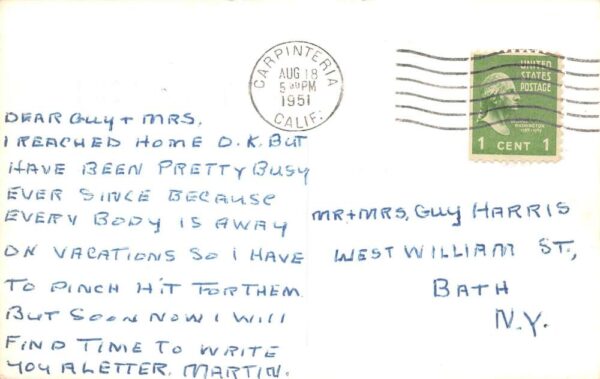 CARPINTERIA
AUG 18
5 PM
1951
CALIF.
UNITED
STATES
POSTAGE
WASHINGTON
1 CENT 1
DEAR GUY + MRS.
I REACHED HOME O.K. BUT
HAVE BEEN PRETTY BUSY
EVER SINCE BECAUSE
EVERY BODY IS AWAY
ON VACATIONS SO I HAVE
TO PINCH HIT FOR THEM
BUT SOON NOW I WILL
FIND TIME TO WRITE
YOU A LETTER. MARTIN.
MR + MRS, GUY HARRIS
WEST WILLIAM ST.,
BATH
N.Y.